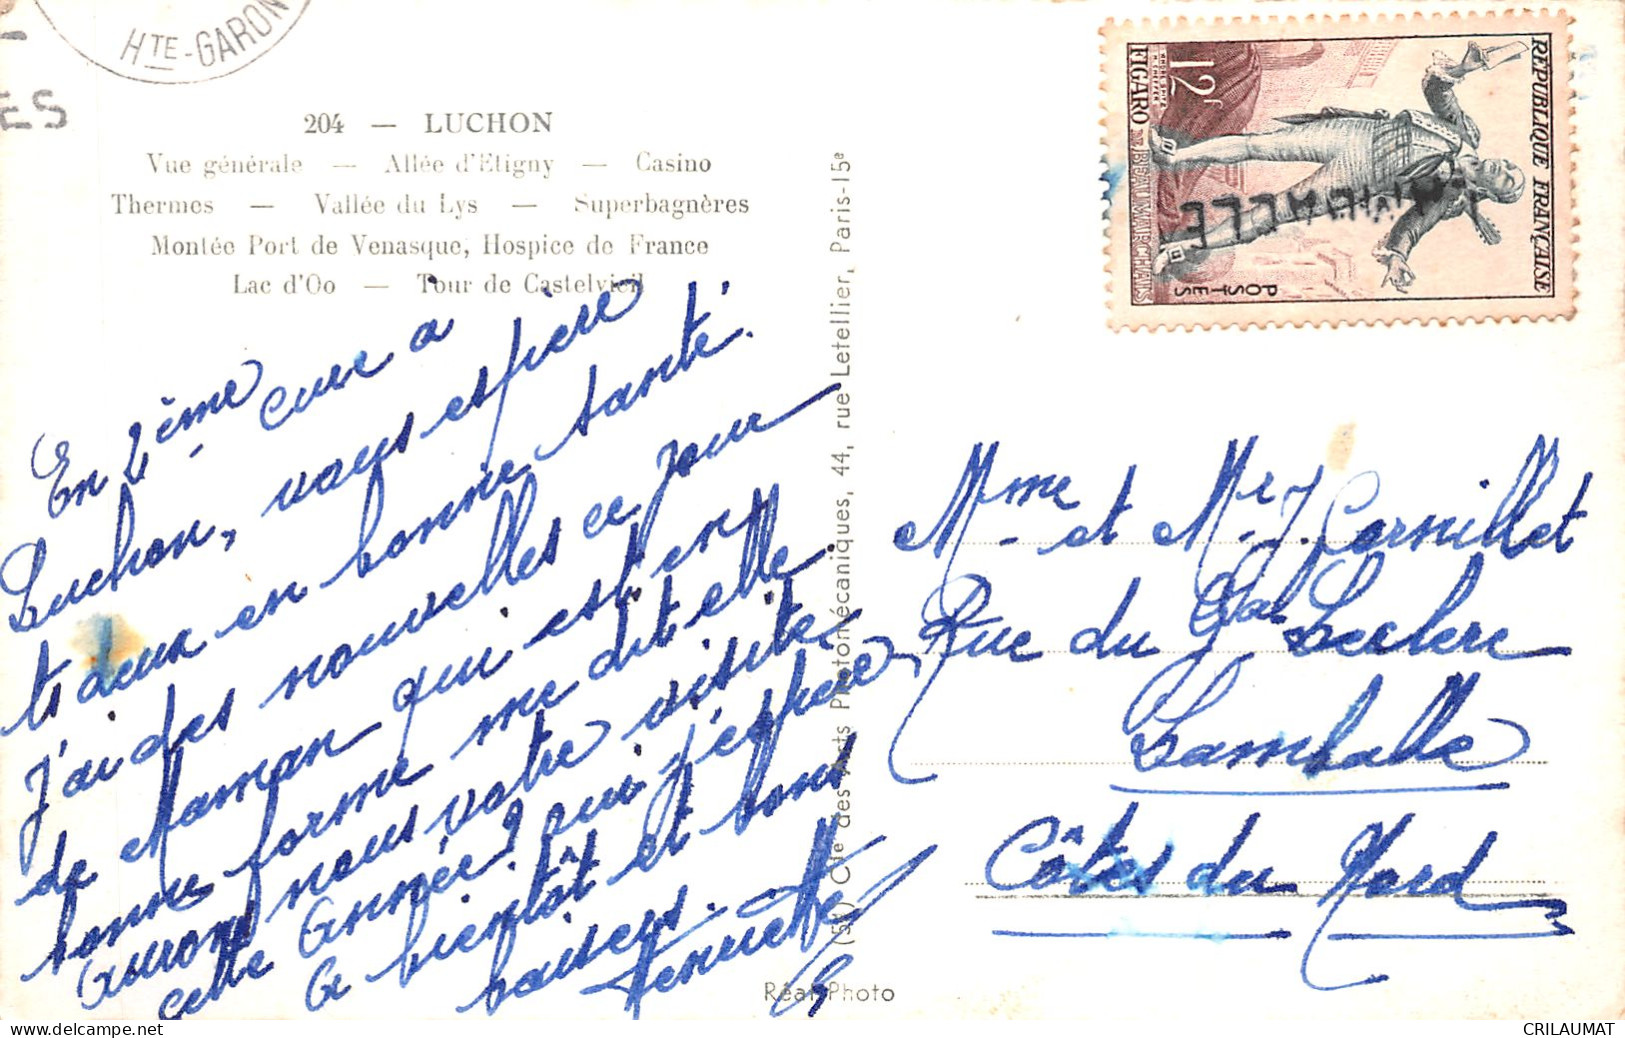 HTE-GARON
ES
204 — LUCHON
Vue générale — Allée d'Etigny — Casino
Thermes — Vallée du Lys — Superbagnères
Montée Port de Venasque, Hospice de France
Lac d'Oo — Tour de Castelvieil
En 2ème cure à
Luchon, vous espère
ts deux en bonne santé.
J'ai des nouvelles ce jour
de Maman qui est en
bonne forme me dit elle.
Aurons nous votre visite
cette Année? oui j'espère,
A bientôt et bons
baisers.
(51) Cie des Arts Photomécaniques, 44, rue Letellier, Paris-15e
Réal-Photo
RÉPUBLIQUE FRANÇAISE
POSTES
12f
FIGARO DE BEAUMARCHAIS
Mme et Mr J. Cornillet
Rue du Gal Leclerc
Lamballe
Côtes du Nord
CRILAUMAT